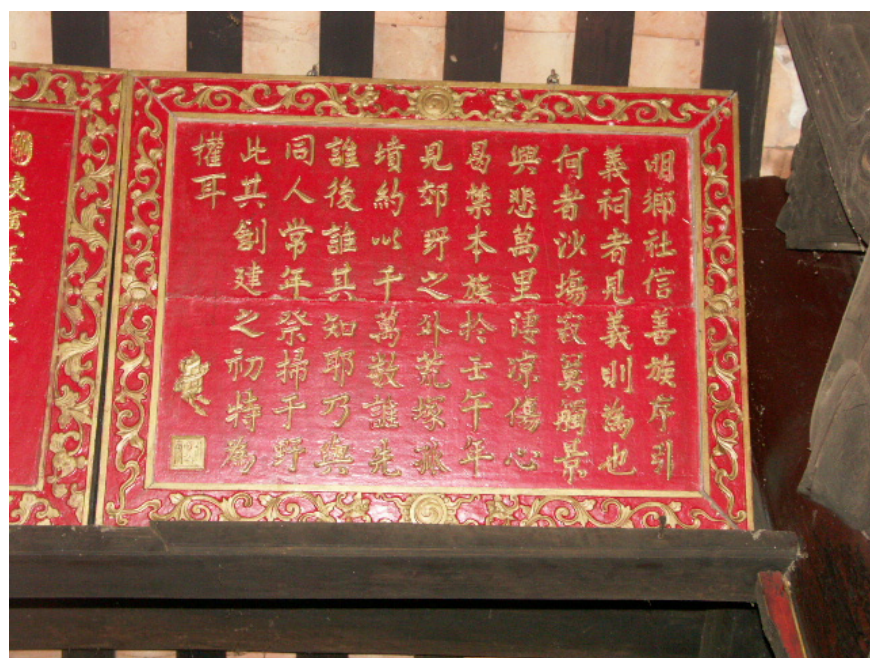 明鄉社信善族序引
義祠者見義則為也
何者沙塲寂寞觸景
興悲萬里淒凉傷心
曷禁本族於壬午年
見郊野之外荒塚孤
墳約以千萬數誰先
誰後誰其知耶乃與
同人常年祭掃于野
此其創建之初特為
權耳
庚寅年